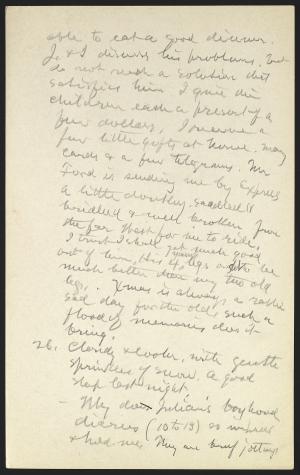 able to eat a good dinner.
J. & I discuss his problems, but
do not reach a solution that
satisfies him. I give the
children each a present of a
few dollars, I receive a
few little gifts at home, many
cards & a few telegrams. Mr
Ford is sending me by Express
a little donkey, saddled &
bridled & well broken, from
the far West for me to ride.
I trust I shall get much good
out of him, His 4 young legs ought to be
much better than my two old
legs. Xmas is always a rather
sad day for the old, such a
flood of memories does it
bring.
26. Cloudy & cooler, with gentle
sprinkles of snow. A good
sleep last night.
— My Julian's boyhood
diaries (10 to 13) so
& hold me. They are brief jottings